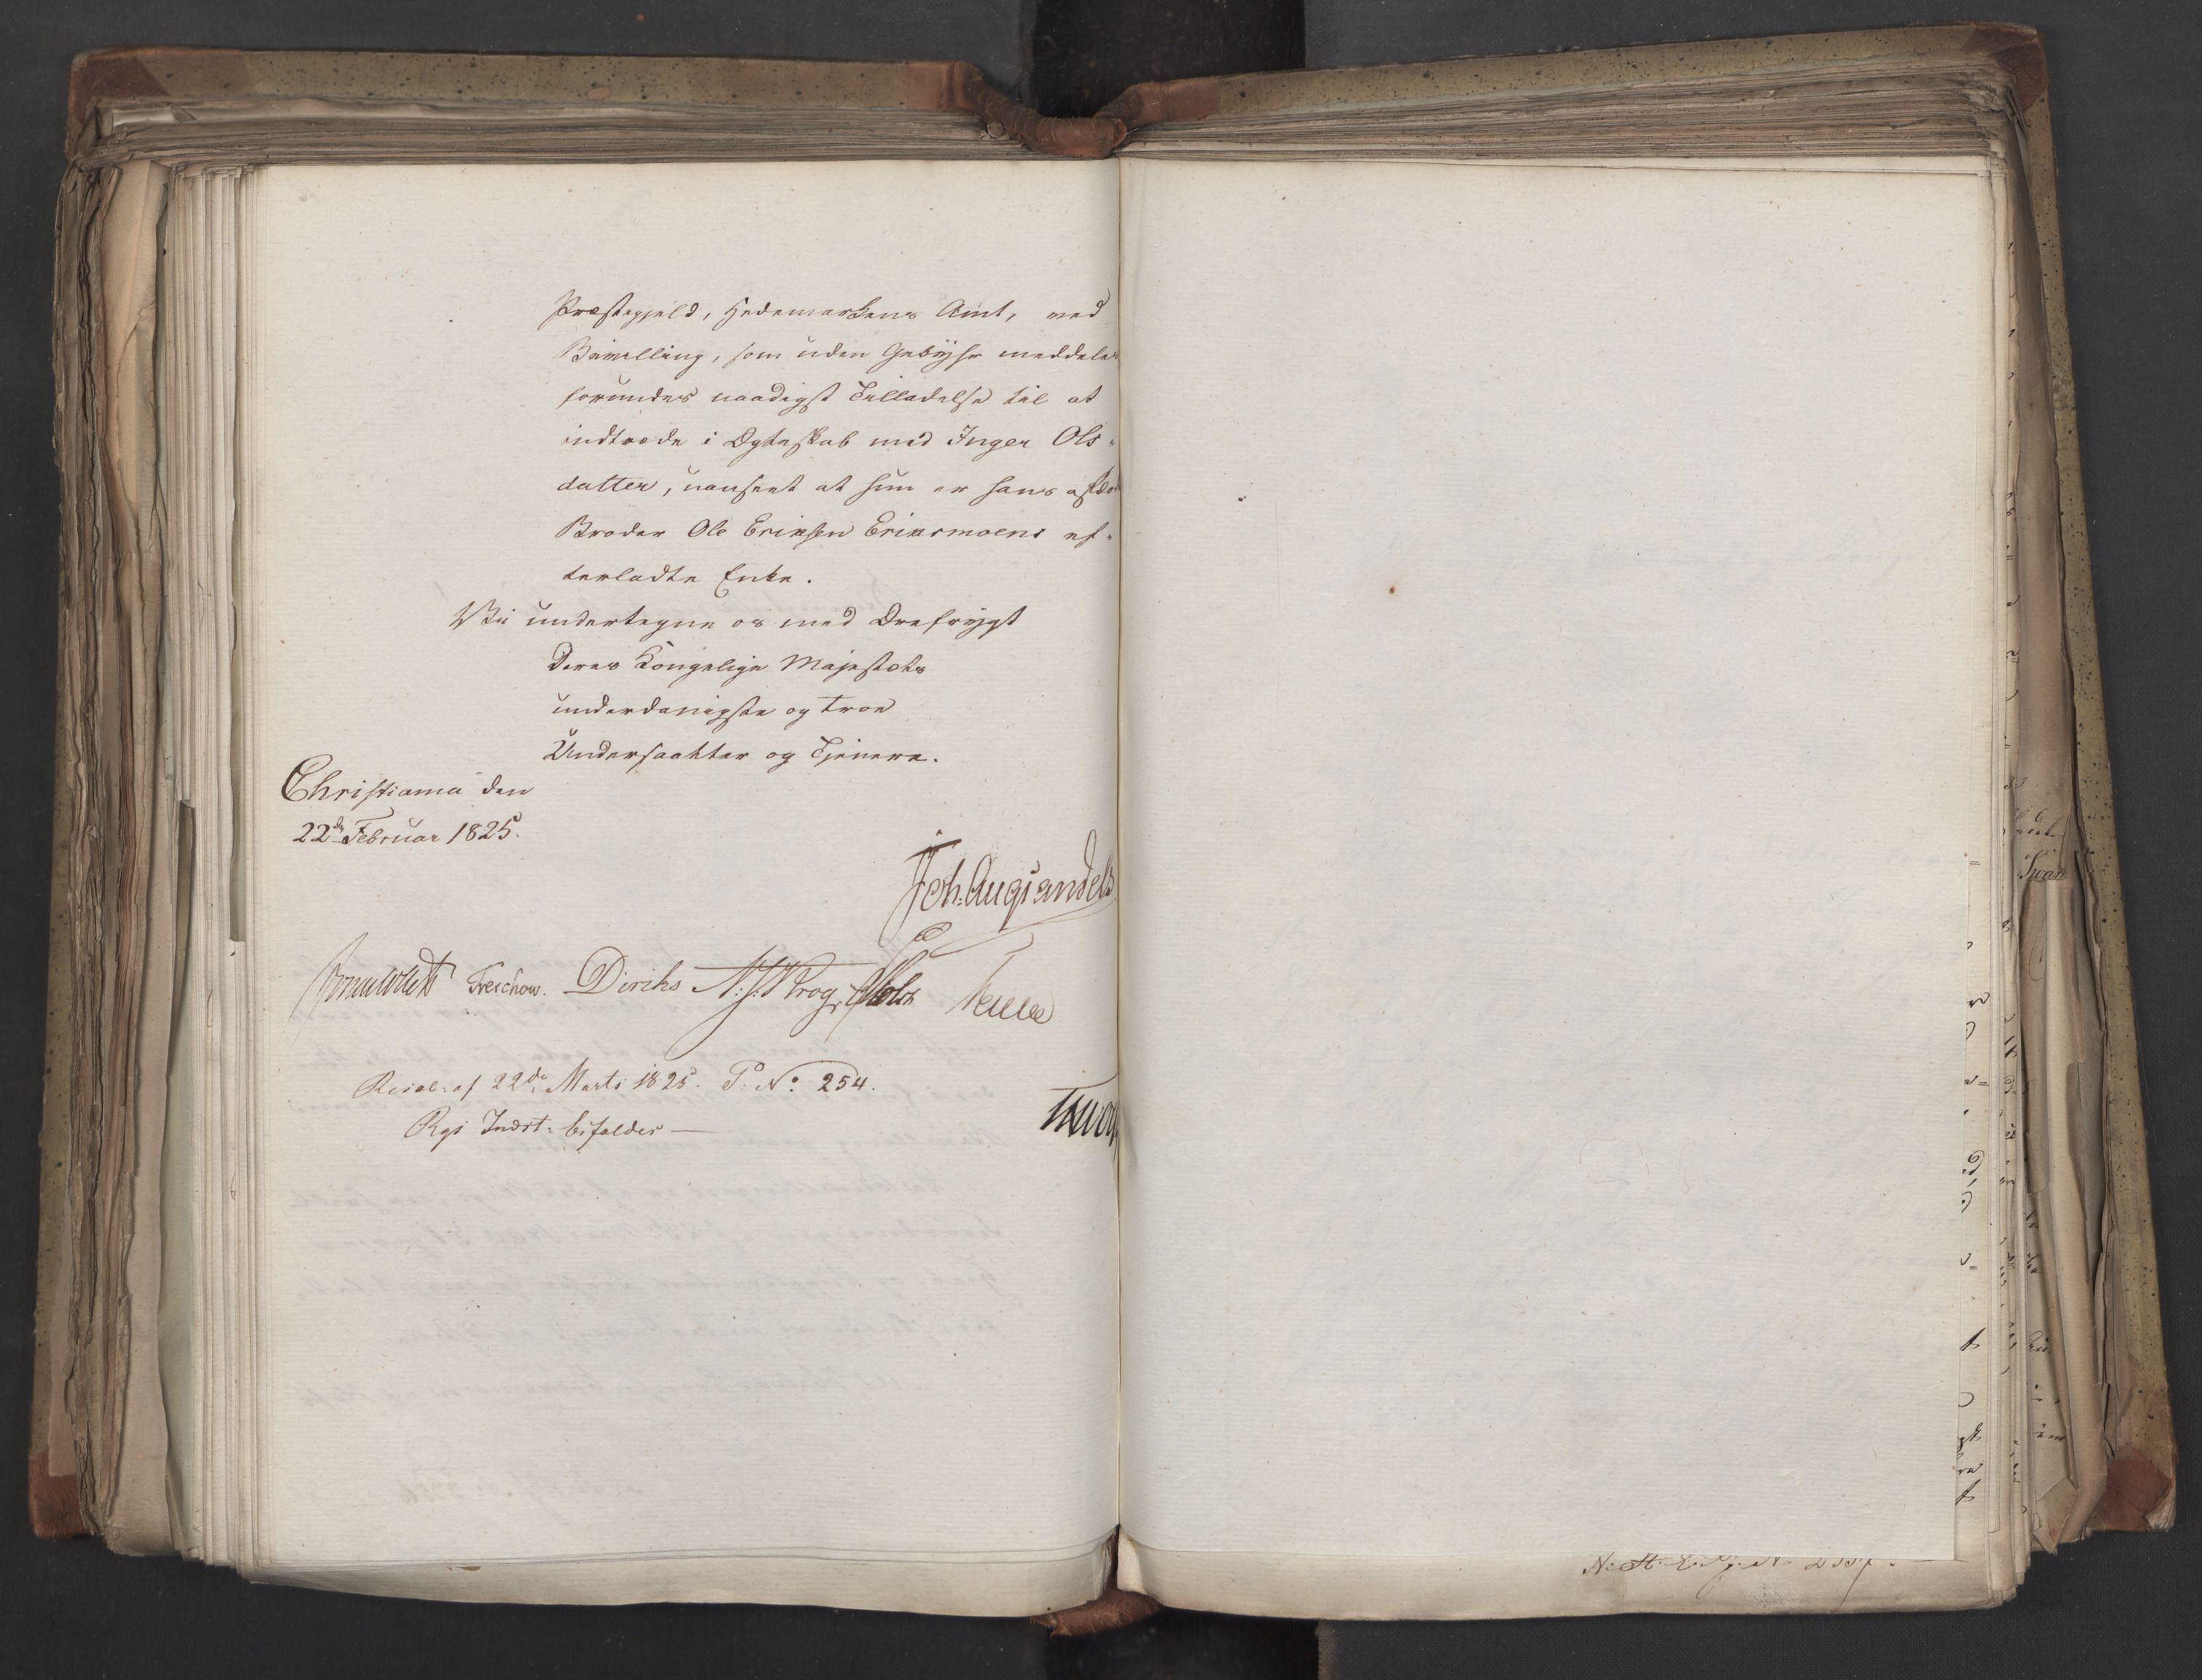 Præstegjeld, Hedemarkens Amt, ved
Bevilling, som uden Gebyhr meddeles
forundes naadigst Tilladelse til at
indtræde i Ægteskab med Inger Ols-
datter, uanseet at hun er hans afdø
Broder Ole Eriksen Eriksmoens ef-
terladte Enke.
Vi undertegne os med Ærefrygt
Deres Kongelige Majestæts
underdanigste og troe
Undersaatter og Tjenere.
Christiania den
22de Februar 1825.
Joh. Aug. Sandels
Sommerhielm Treschow. Diriks N: J: Krog, P Holst
Resol: af 22de Marts 1825. P. No. 254.
Rgs Indst: bifaldes —